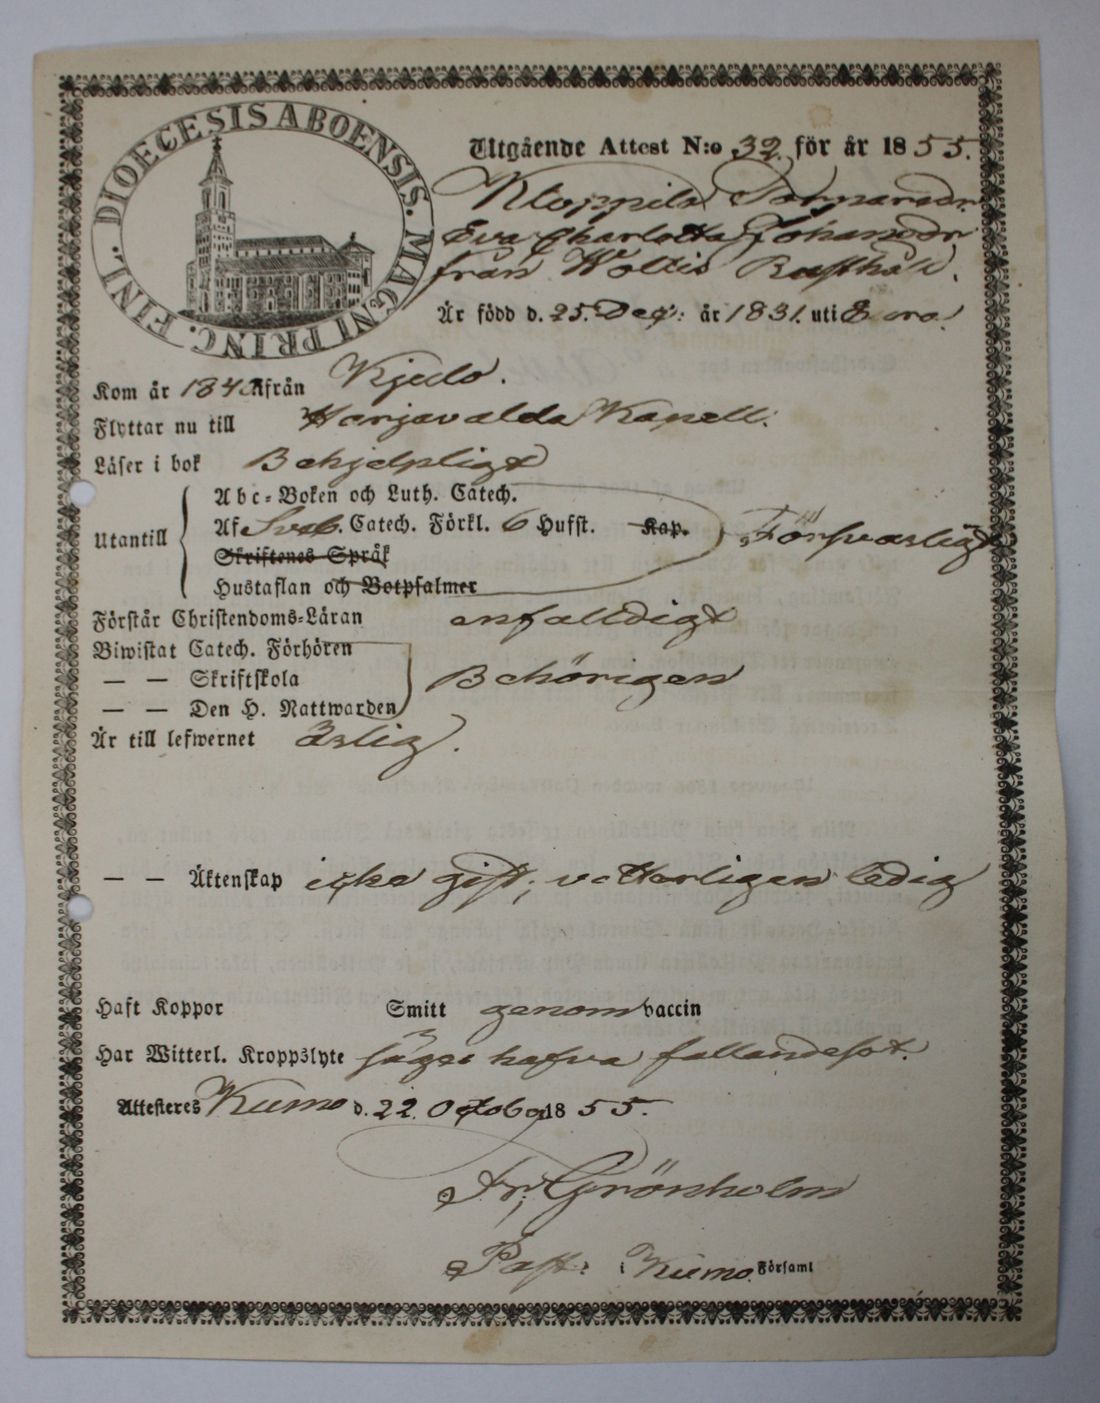 DIOECESIS ABOENSIS. MAGNI PRINC. FINL.
Utgående Attest N:o 32. för år 1855.
Eva Charlotta Johansdr
från Woltis Rusthåll.
Är född d. 25. Dec: år 1831. uti Eura.
Kom år 184 från Kjulo.
Flyttar nu till Harjavalda Kapell.
Läser i bok Behjelpligt
Abc-Boken och Luth. Catech.
Utantill Af Sveb. Catech. Förkl. 6 Hufst. Kap. Försvarligt
Skriftenes Språk
Hustaflan och Botpsalmer
Förstår Christendoms-Läran enfalldigt
Biwistat Catech. Förhören
— — Skriftskola Behörigen
— — Den H. Nattwarden
Är till lefwernet ärlig.
— — Äktenskap icke gift, veterligen ledig
Haft Koppor Smitt genom vaccin
Har Witterl. Kroppslyte säges hafva fallandesot.
Attesteres Kumo d. 22. October 1855.
Fr. Grönholm
Past: i Kumo Församl